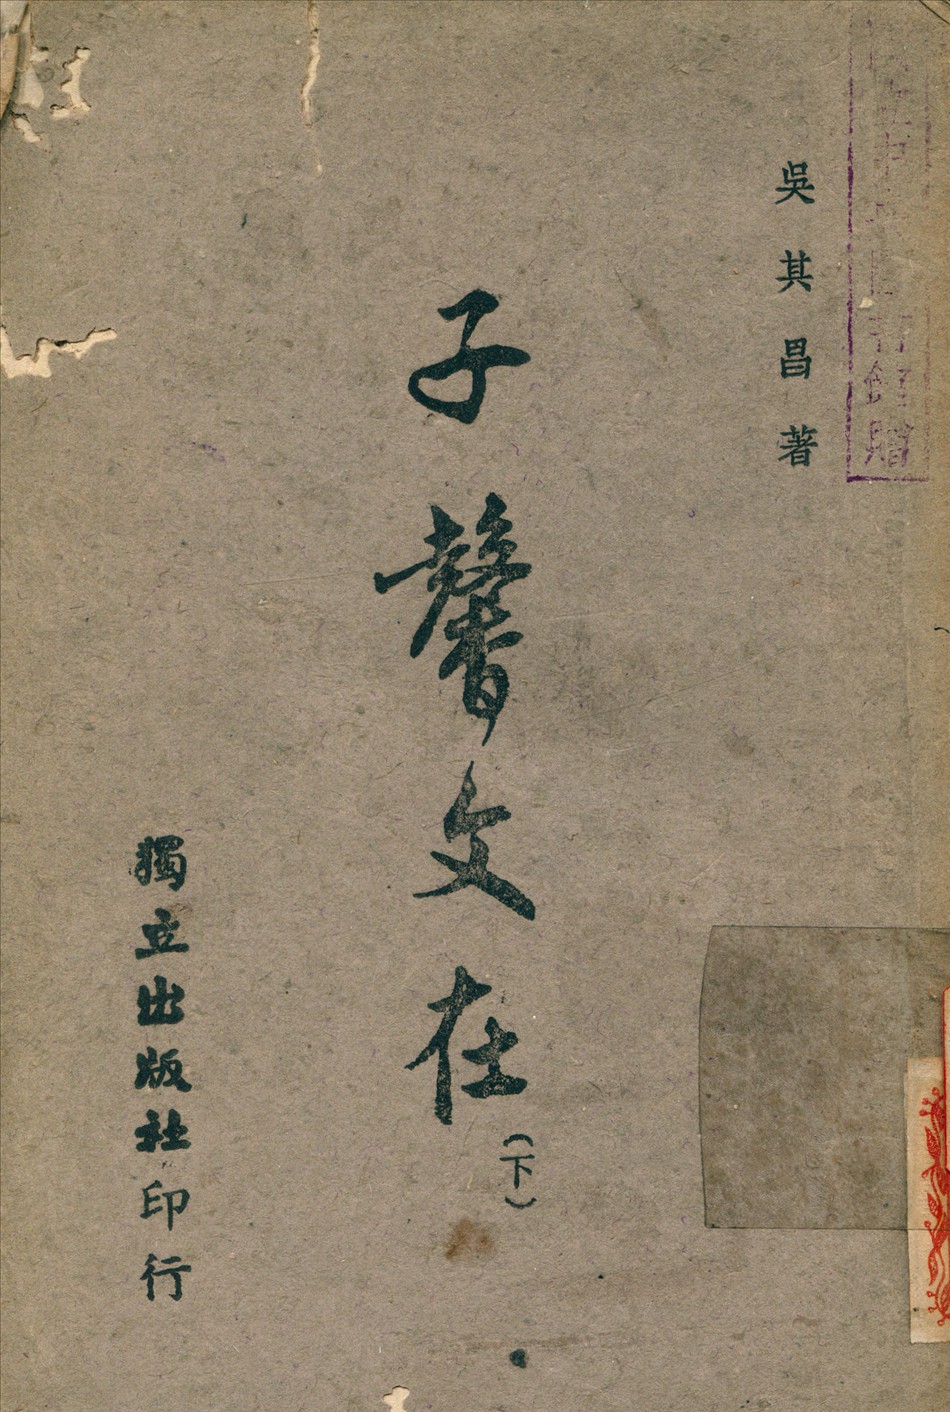 吳其昌著
子馨文在
（下）
獨立出版社印行